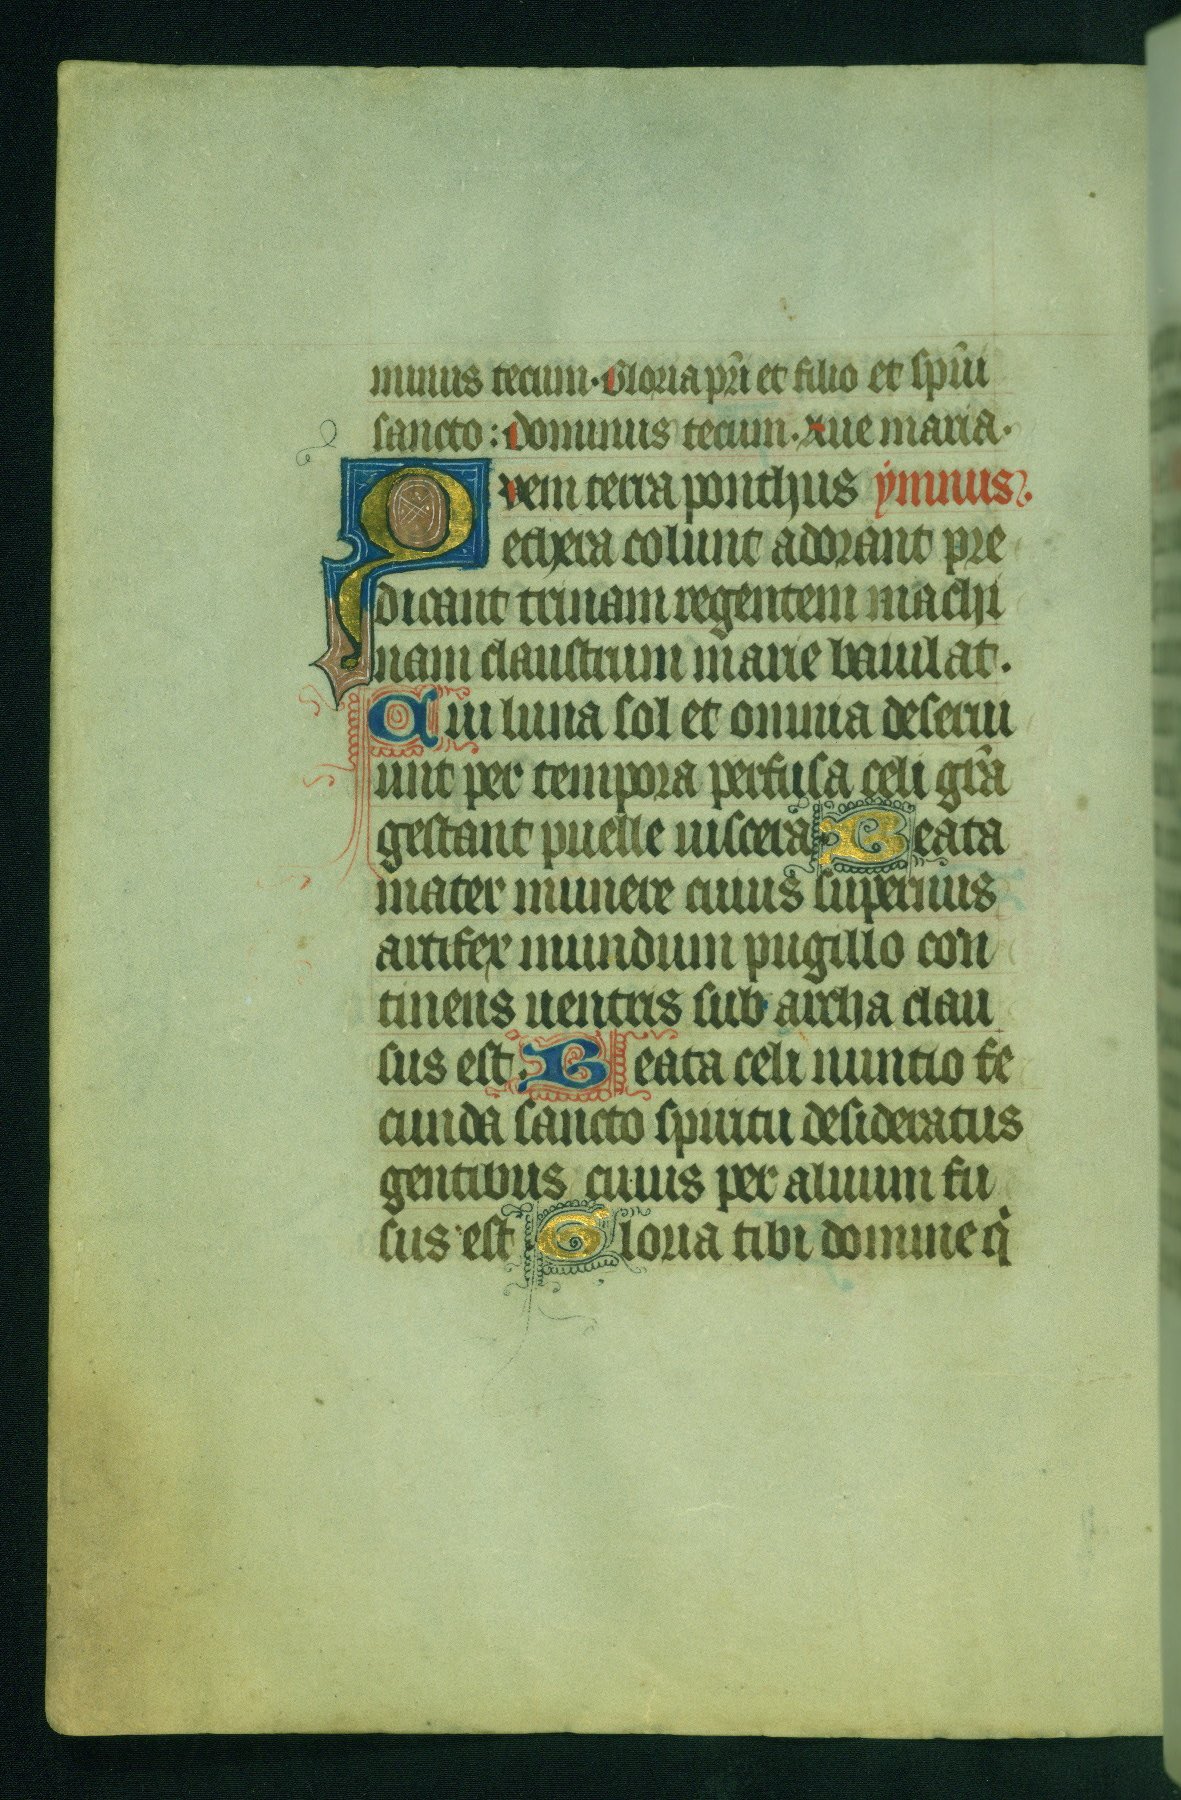 minus tecum. Gloria pr̄i et filio et sp̄ui
sancto: Dominus tecum. Aue maria.
Quem terra ponthus ymnus.
ethera colunt adorant pre
dicant trinam regentem machi
nam claustrum marie baiulat.
Cui luna sol et omnia deserui
unt per tempora perfusa celi gr̄a
gestant puelle uiscera Beata
mater munere cuius supernus
artifex mundum pugillo con
tinens uentris sub archa clau
sus est. Beata celi nuntio fe
cunda sancto spiritu desideratus
gentibus cuius per aluum fu
sus est Gloria tibi domine q̄